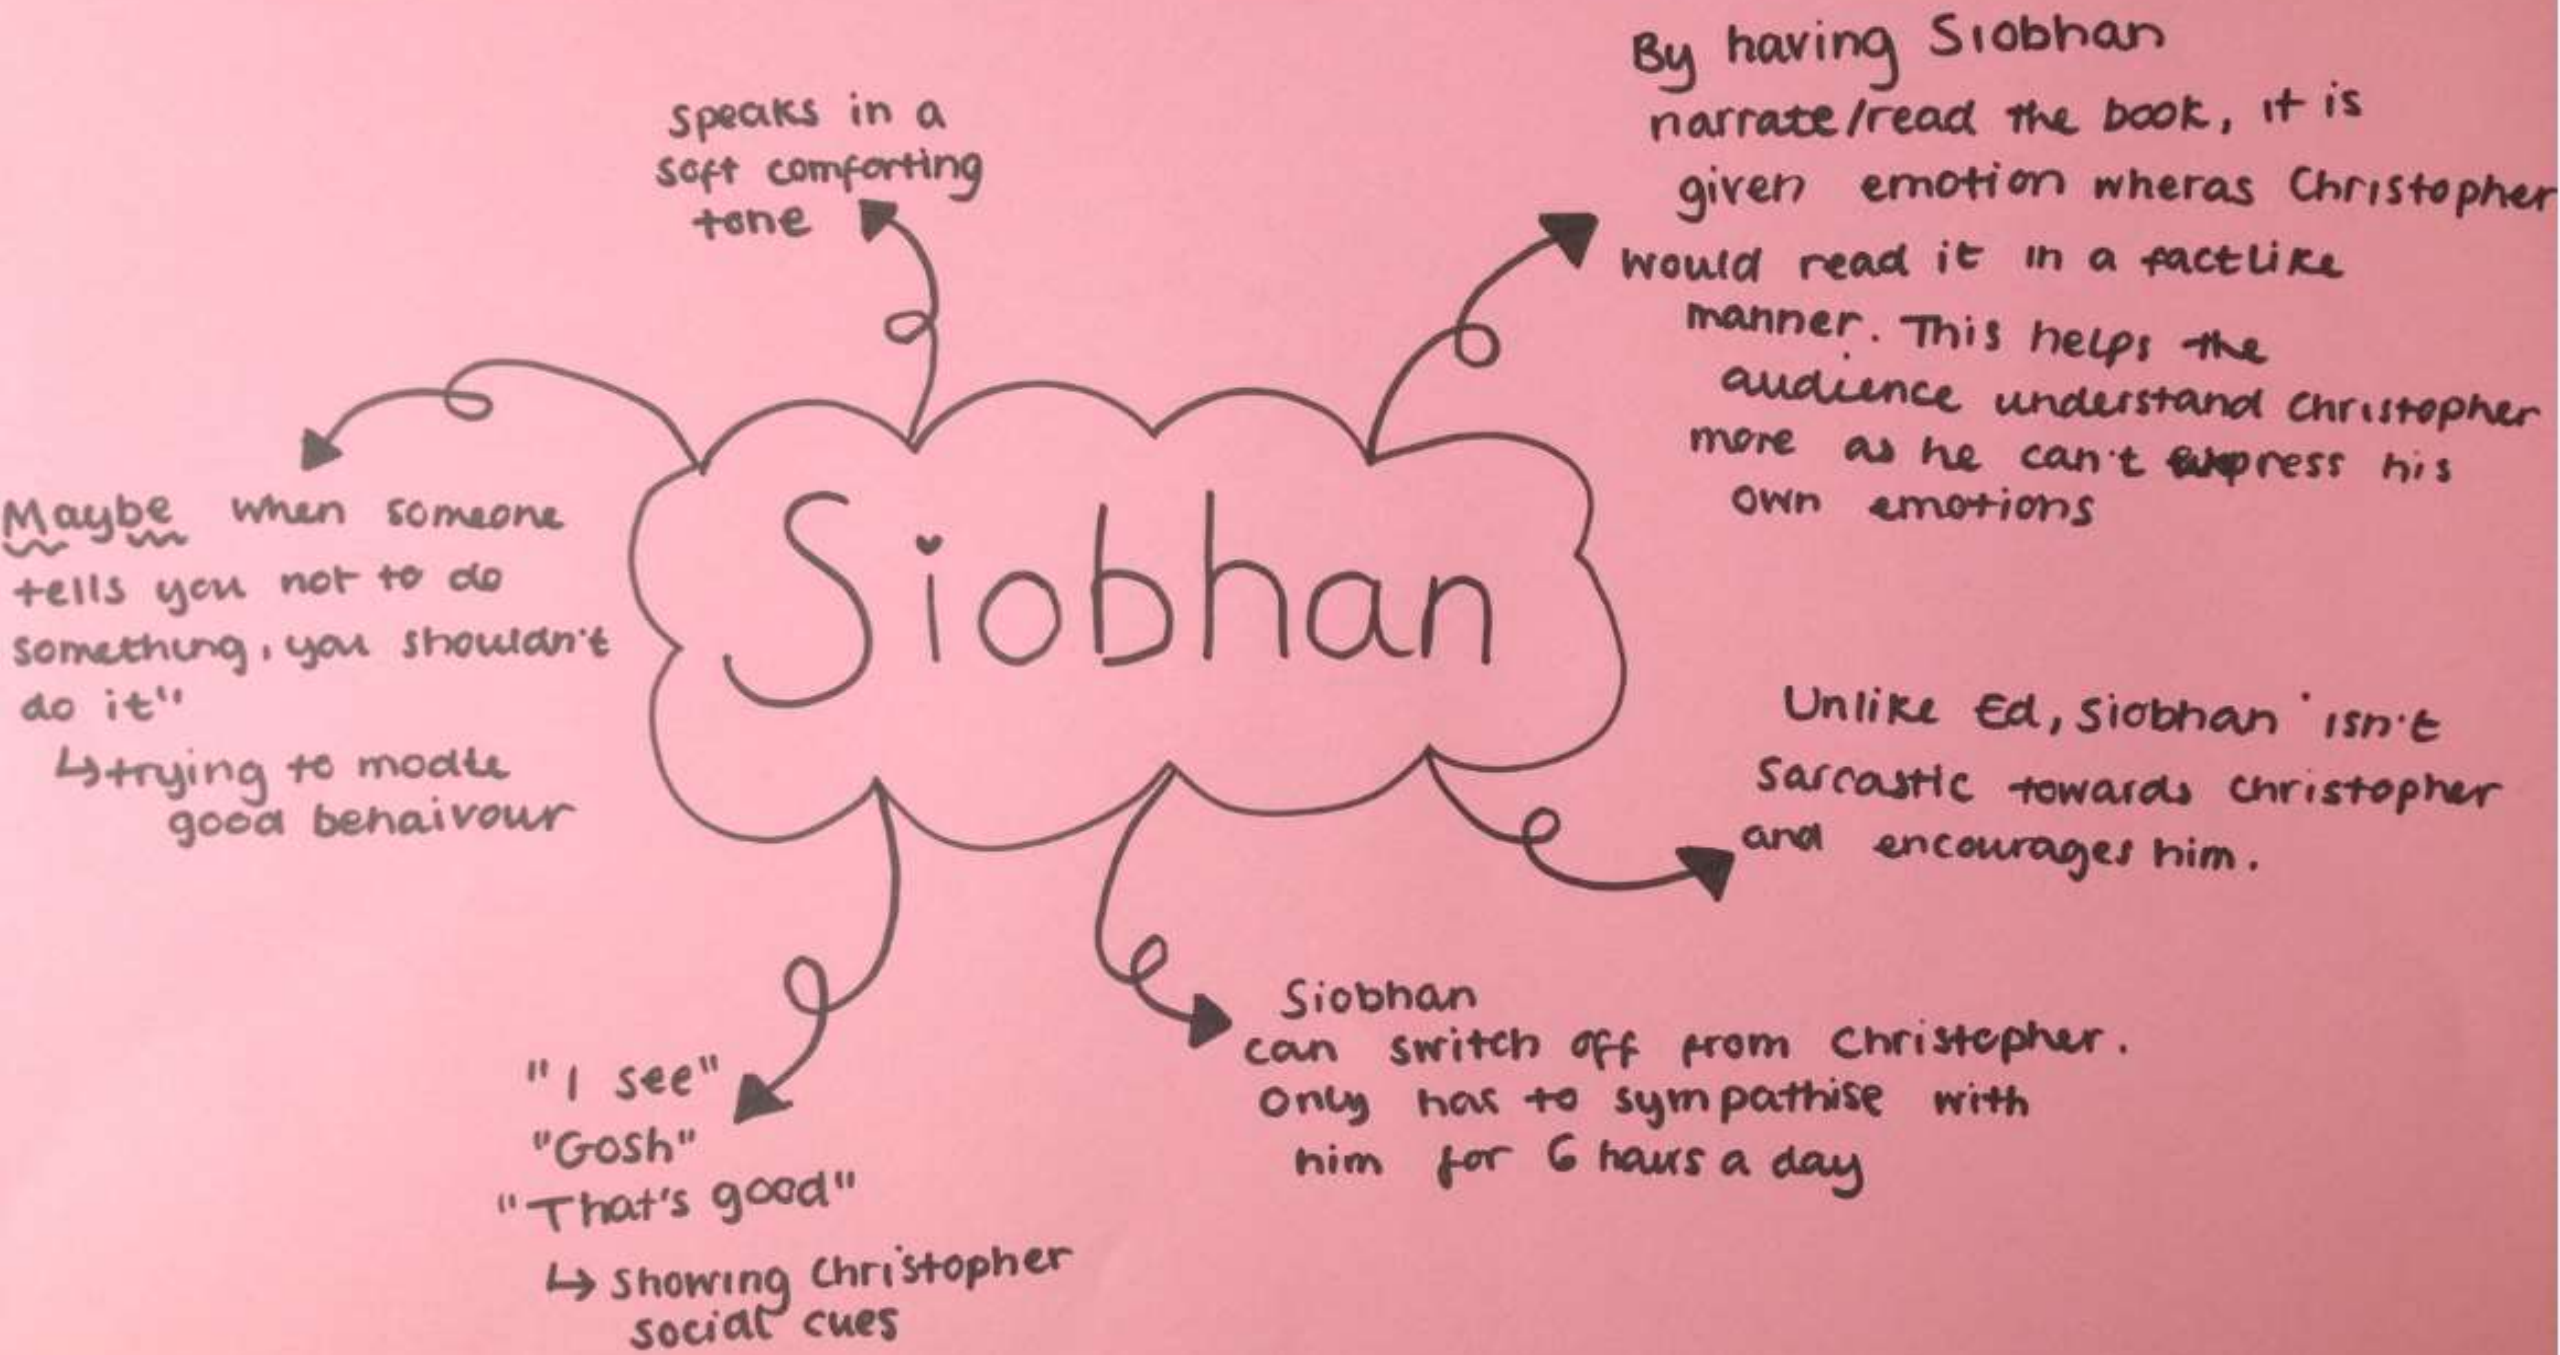 Siobhan
speaks in a
soft comforting
tone
By having Siobhan
narrate/read the book, it is
given emotion wheras Christopher
would read it in a factlike
manner. This helps the
audience understand Christopher
more as he can't express his
own emotions
Maybe when someone
tells you not to do
something, you shouldn't
do it"
↳trying to modle
good behaivour
Unlike Ed, Siobhan isn't
sarcastic towards Christopher
and encourages him.
Siobhan
can switch off from Christopher.
Only has to sympathise with
him for 6 hours a day
"I see"
"Gosh"
"That's good"
↳ Showing Christopher
social cues